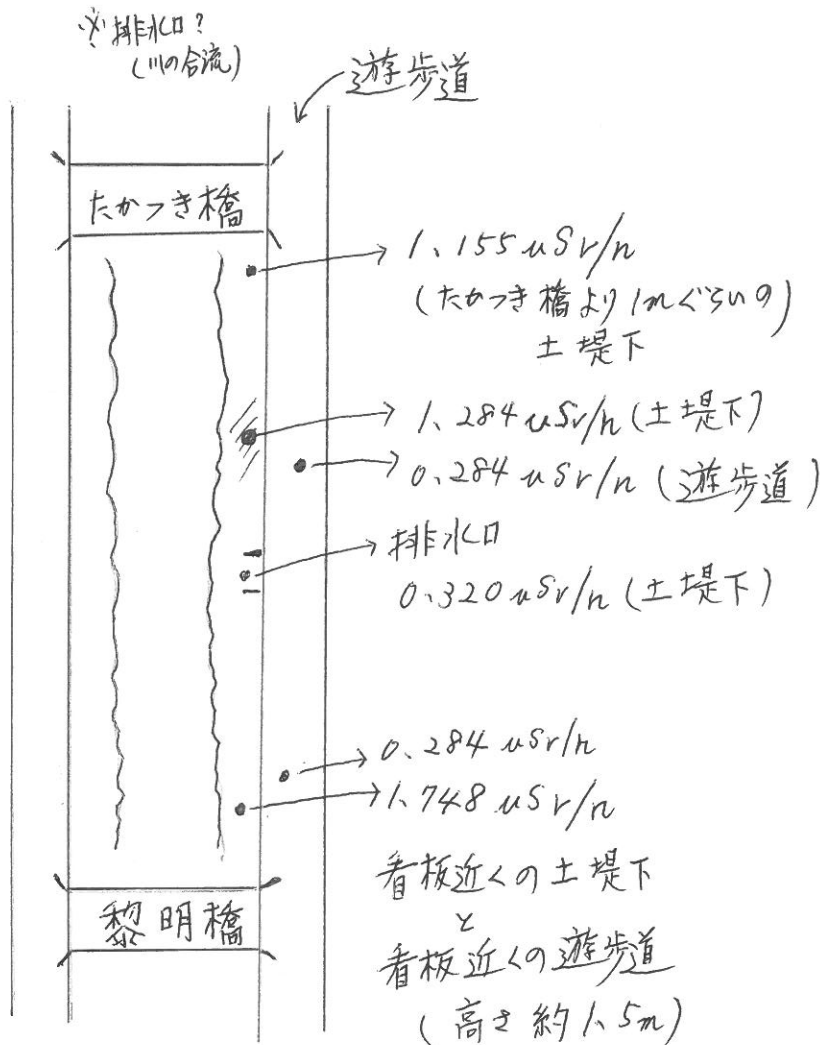 ※排水口?
(川の合流)
遊歩道
たかつき橋
1.155 uSv/h
(たかつき橋より1mぐらいの)
土堤下
1.284 uSv/h (土堤下)
0.284 uSv/h (遊歩道)
排水口
0.320 uSv/h (土堤下)
0.284 uSv/h
1.748 uSv/h
看板近くの土堤下
と
看板近くの遊歩道
(高さ約1.5m)
黎明橋